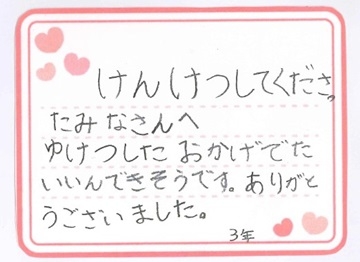 けんけつしてくださっ
たみなさんへ
ゆけつした おかげでた
いいんできそうです。ありがと
うございました。
3年